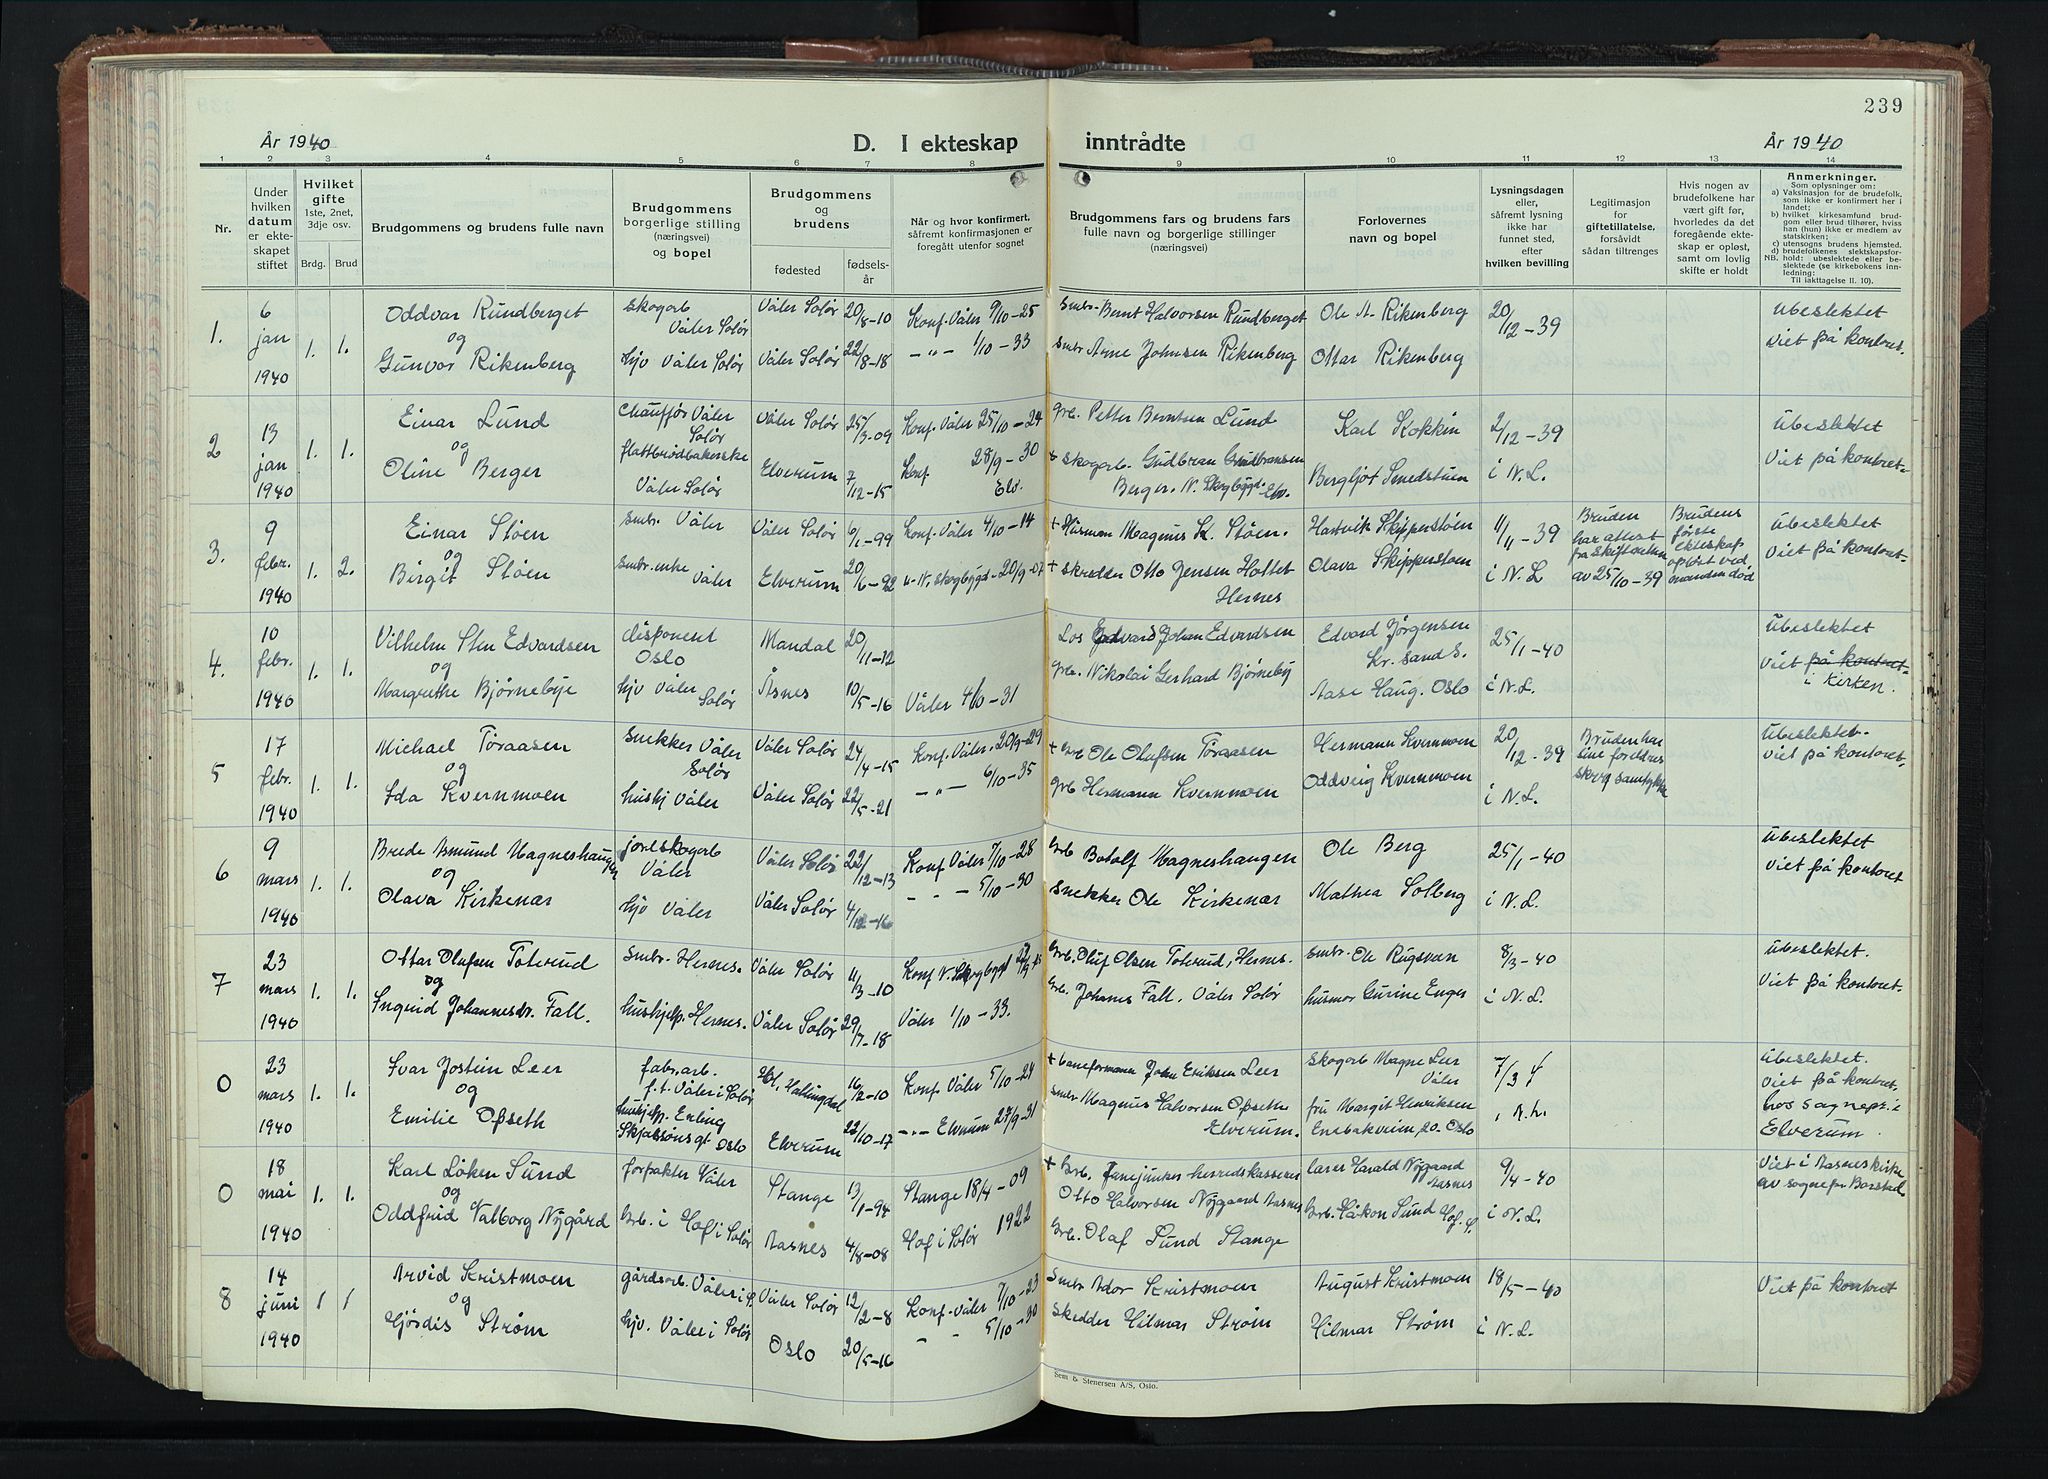 239
År 1940
D. I ekteskap inntrådte
År 1940
1 2 3 4 5 6 7 8 9 10 11 12 13 14
Nr.
Under hvilken datum er ekteskapet stiftet
Hvilket gifte 1ste, 2net, 3dje osv.
Brdg. Brud
Brudgommens og brudens fulle navn
Brudgommens borgerlige stilling (næringsvei) og bopel
Brudgommens og brudens
fødested
fødsels-år
Når og hvor konfirmert, såfremt konfirmasjonen er foregått utenfor sognet
Brudgommens fars og brudens fars fulle navn og borgerlige stillinger (næringsvei)
Forlovernes navn og bopel
Lysningsdagen eller, såfremt lysning ikke har funnet sted, efter hvilken bevilling
Legitimasjon for giftetillatelse, forsåvidt sådan tiltrenges
Hvis nogen av brudefolkene har vært gift før, hvorledes da det foregående ekteskap er opløst, samt om lovlig skifte er holdt
Anmerkninger.
Som oplysninger om:
a) Vaksinasjon for de brudefolk, som ikke er konfirmert her i landet;
b) hvilket kirkesamfund brudgom eller brud tilhører, hviss han (hun) ikke er medlem av statskirken;
c) utensogns brudens hjemsted.
d) brudefolkenes slektskapsforhold: ubeslektede eller beslektede (se kirkebokens innledning:
NB.
Til iakttagelse II. 10).
1. 6 jan 1940 1. 1.
Oddvar Rundberget
og
Gunvor Rikenberg
skogarb Våler Solør
hjv Våler Solør
Våler Solør 20/8-10
Våler Solør 22/8-18
Konf. Våler 9/10-25
-"- 1/10-33
Smbr. Bernt Halvorsen Rundberget
Smbr Arne Johnsen Rikenberg
Ole A. Rikenberg
Ottar Rikenberg
20/12-39
Ubeslektet
Viet på kontoret.
2 13 jan 1940 1. 1.
Einar Lund
og
Oline Berger
Chauffør Våler Solør
flattbrødbakerske Våler Solør
Våler Solør 25/3-09
Elverum 7/12-15
Konf. Våler 25/10-24
Konf 28/9-30 Elv.
Grb. Petter Berntsen Lund
+ skogarb. Gudbran Gudbransen
Berger. N. Skogbygd. Elv.
Karl Kokkin
Bergljot Smedstuen
2/12-39
i N.L.
Ubeslektet
Viet på kontoret
3. 9 febr. 1940 1. 2.
Einar Støen
og
Birgit Støen
Smbr. Våler
Smbr. enke Våler
Våler Solør 6/1-99
Elverum 20/6-92
Konf. Våler 4/10-14
"- N. Skogbygd - 20/9-07
+ Husman Magnus K. Støen.
+ skredder Otto Jensen Holtet
Hernes
Hartvik Skipperstøen
Olava Skipperstøen
1/11-39
i N.L
Bruden har attest fra skifteretten av 25/10-39
Brudens første ekteskap opløst ved mannen død
Ubeslektet
Viet på kontoret
4. 10 febr. 1940 1. 1.
Vilhelm Sten Edvardsen
og
Margrethe Bjørnebye
disponent Oslo
hjv Våler Solør
Mandal 20/11-12
Åsnes 10/5-16
Våler 4/10-31
Los Edvard Johan Edvardsen
Grb. Nikolai Gerhard Bjørneby
Edvard Jørgensen
Kr. sand S.
Aase Haug. Oslo
25/1-40
i N.L.
Ubeslektet
Viet på kontoret
i kirken.
5 17 febr. 1940 1. 1.
Michael Toraasen
og
Ida Kvernmoen
Snekker Våler Solør
hushj Våler
Våler Solør 24/4-15
Våler Solør 22/5-21
Konf. Våler. 20/9-29
-"- 6/10-35
+ Grb Ole Olufsen Toraasen
Grb Hermann Kvernmoen
Hermann Kvernmoen
Oddveig Kvernmoen
20/12-39
i N.L.
Bruden har sine foreldres skrg samtykke
Ubeslektet.
Viet på kontoret.
6 9 mars 1940 1. 1.
Brede Amund Magneshaugen
og
Olava Kirkenær
jordskogarb Våler
hjv Våler
Våler Solør 22/12-13
Våler Solør 4/12-16
Konf Våler 7/10-28
- - 5/10-30
Grb Botolf Magneshaugen
Snekker Ole Kirkenær
Ole Berg
Mathea Solberg
25/1-40
i N.L.
Ubeslektet
Viet på kontoret
7 23 mars 1940 1. 1.
Ottar Olufsen Toterud
og
Ingrid Johannesdr. Fall.
Smbr. Hernes.
hushjelp. Hernes.
Våler Solør 11/3-10
Våler Solør 29/7-18
Konf N. Skogbygd
Våler 1/10-33.
Grb. Oluf Olsen Toterud, Hernes.
Grb. Johanes Fall. Våler Solør
Smbr. Ole Rugsveen
husmor Gurine Enger
8/3-40
i N.L.
Ubeslektet.
Viet på kontoret.
0 23 mars 1940 1. 1.
Ivar Jostein Leer
og
Emilie Opseth
fabr.arb. f.t. Våler i Solør
hushjelp. Erling Skjalssønsgt Oslo
Hol, Hallingdal 16/2-10
Elverum 22/10-17
Konf. Våler 5/10-24
-"- Elverum 27/9-31
+ baneformann John Eriksen Leer
Smbr. Magnus Halvorsen Opseth
Elverum.
skogarb Magne Leer
Våler
fru Margit Henriksen
Enebakveien 20. Oslo
7/3 4
i N.L.
Ubeslektet.
Viet på kontoret.
hos sognepr. i
Elverum.
0 18 mai 1940 1. 1.
Karl Løken Sund
og
Oddfrid Valborg Nygård
forpakter Våler
Grb. i Hof i Solør
Stange 13/1-94
Aasnes 4/8-08
Stange 18/4-09
Hof i Solør 1922
+ Grb. Fanejunker herredskasserer
Otto Halvorsen Nygaard Aasnes
Grb. Olaf Sund Stange
lærer Harald Nygaard
Aasnes
Grb. Håkon Sund Hof. S.
9/4-40
i N.L.
Viet i Aasnes kirke
av sognepr. Barstad
8 14 juni 1940 1 1
Arvid Kristmoen
og
Hjørdis Strøm
gårdsarb. Våler i S.
hjv. Våler i Solør
Våler Solør 12/2-8
Oslo 20/5-16
Konf. Våler 7/10-23
- - 5/10-30
Smbr Ador Kristmoen
Skredder Hilmar Strøm
August Kristmoen
Hilmar Strøm
18/5-40
i N.L.
Viet på kontoret
Sem & Stenersen A/S, Oslo.